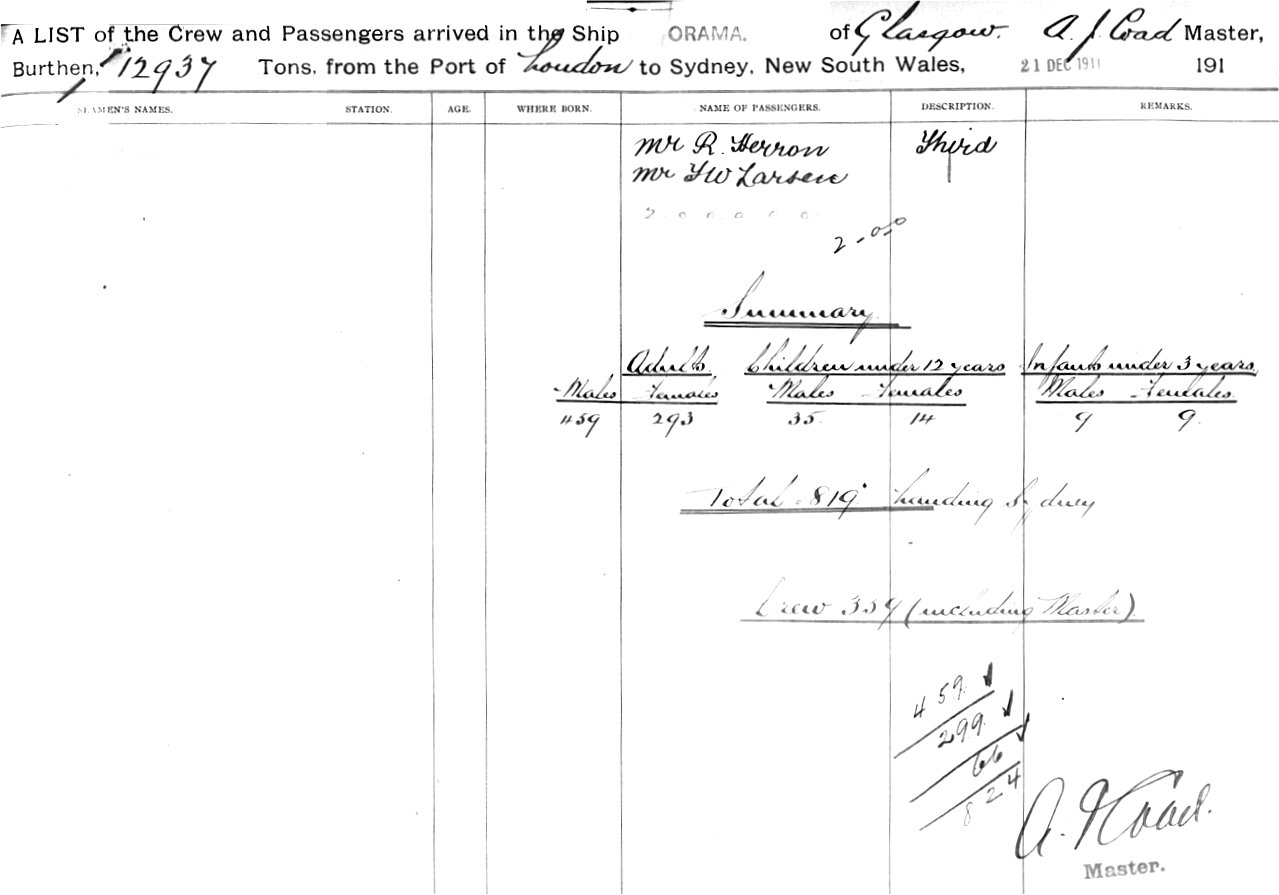 A LIST of the Crew and Passengers arrived in the Ship ORAMA. of Glasgow. A. J. Coad Master,
Burthen, 12937 Tons, from the Port of London to Sydney, New South Wales, 21 DEC 1911 191
SEAMEN'S NAMES. STATION. AGE. WHERE BORN. NAME OF PASSENGERS. DESCRIPTION. REMARKS.
Mr R. Herron Third
Mr F W Larsen
2 . 0 . 0 . 0 0 0
2 - 0 - 0
Summary.
Adults. Children under 12 years Infants under 3 years.
Males Females Males Females Males Females.
459 293 35. 14 9 9.
Total . 819 Landing Sydney
Crew 359 (including Master).
459
299
66
824
A. J Coad.
Master.